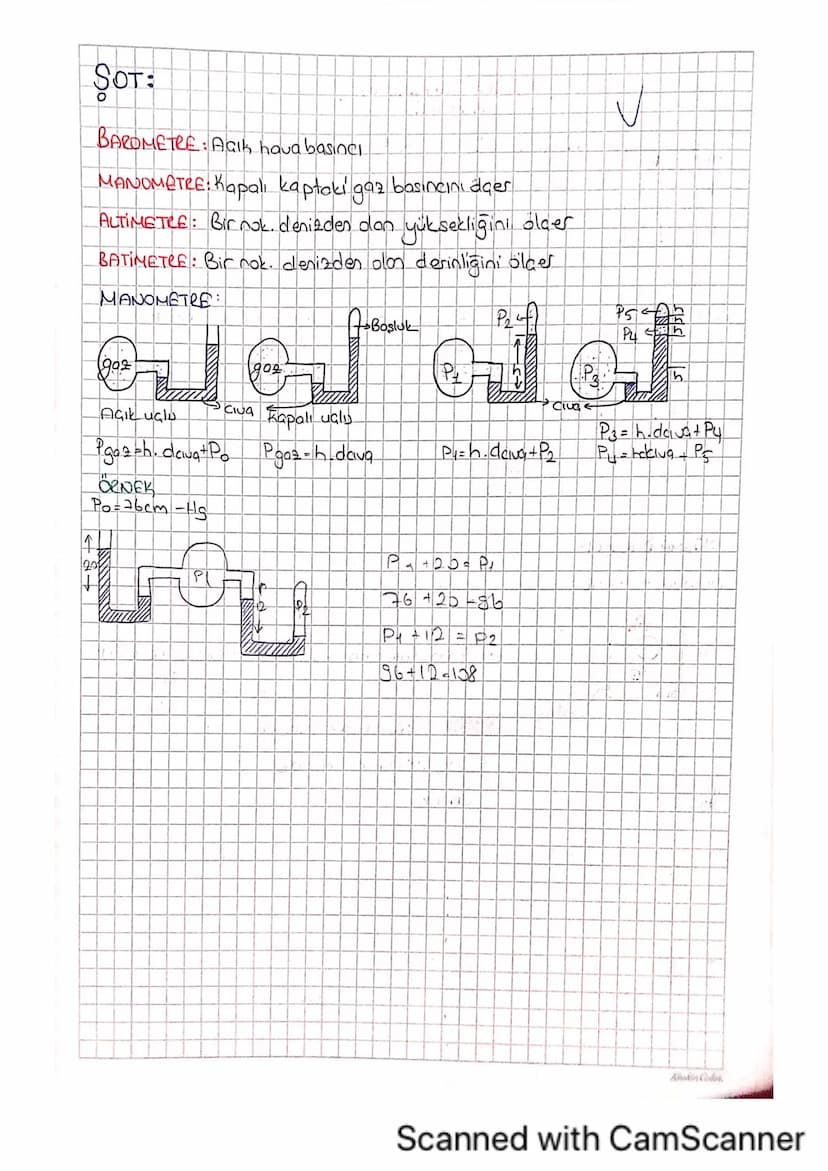 ŞOT:
BAROMETRE: Açık hava basıncı
MANOMETRE: Kapalı kaptaki gaz basıncını ölçer
ALTİMETRE: Bir nok. denizden olan yüksekliğini ölçer
BATİMETRE: Bir nok. denizden olan derinliğini ölçer
MANOMETRE:
gaz
gaz
Boşluk
P1
P2
h
P3
P5
P4
h
h
h
h
Açık uçlu
cıva
Kapalı uçlu
cıva
Pgaz=h.dcıva+P0
Pgaz=h.dcıva
P1=h.dcıva+P2
P3=h.dcıva+P4
P4=hdcıva+P5
ÖRNEK
P0=76cm-Hg
20
P1
12
P2
+20=P1
76+20=96
P1+12=P2
96+12=108
Scanned with CamScanner